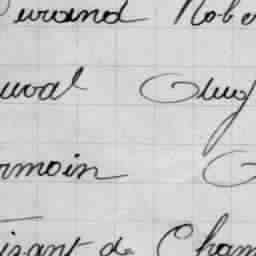 Durand Rober
uval Aug
rmain G
isant de Cham